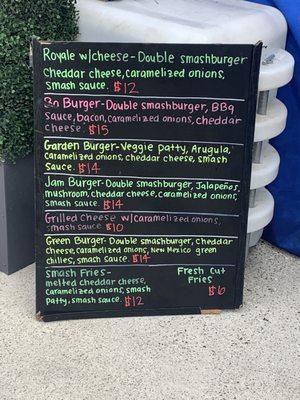 Royale w/cheese - Double smashburger
Cheddar cheese, caramelized onions,
smash sauce. $12
Bo Burger - Double smashburger, BBQ
sauce, bacon, caramelized onions, cheddar
cheese. $15
Garden Burger - Veggie patty, Arugula,
caramelized onions, cheddar cheese, smash
sauce. $14
Jam Burger - Double smashburger, Jalapeños,
mushroom, cheddar cheese, caramelized onions,
smash sauce. $14
Grilled Cheese w/caramelized onions,
smash sauce. $10
Green Burger - Double smashburger, cheddar
cheese, caramelized onions, New Mexico green
chilies, smash sauce. $14
Smash Fries -
melted cheddar cheese,
caramelized onions, smash
patty, smash sauce. $12
Fresh Cut
Fries
$6